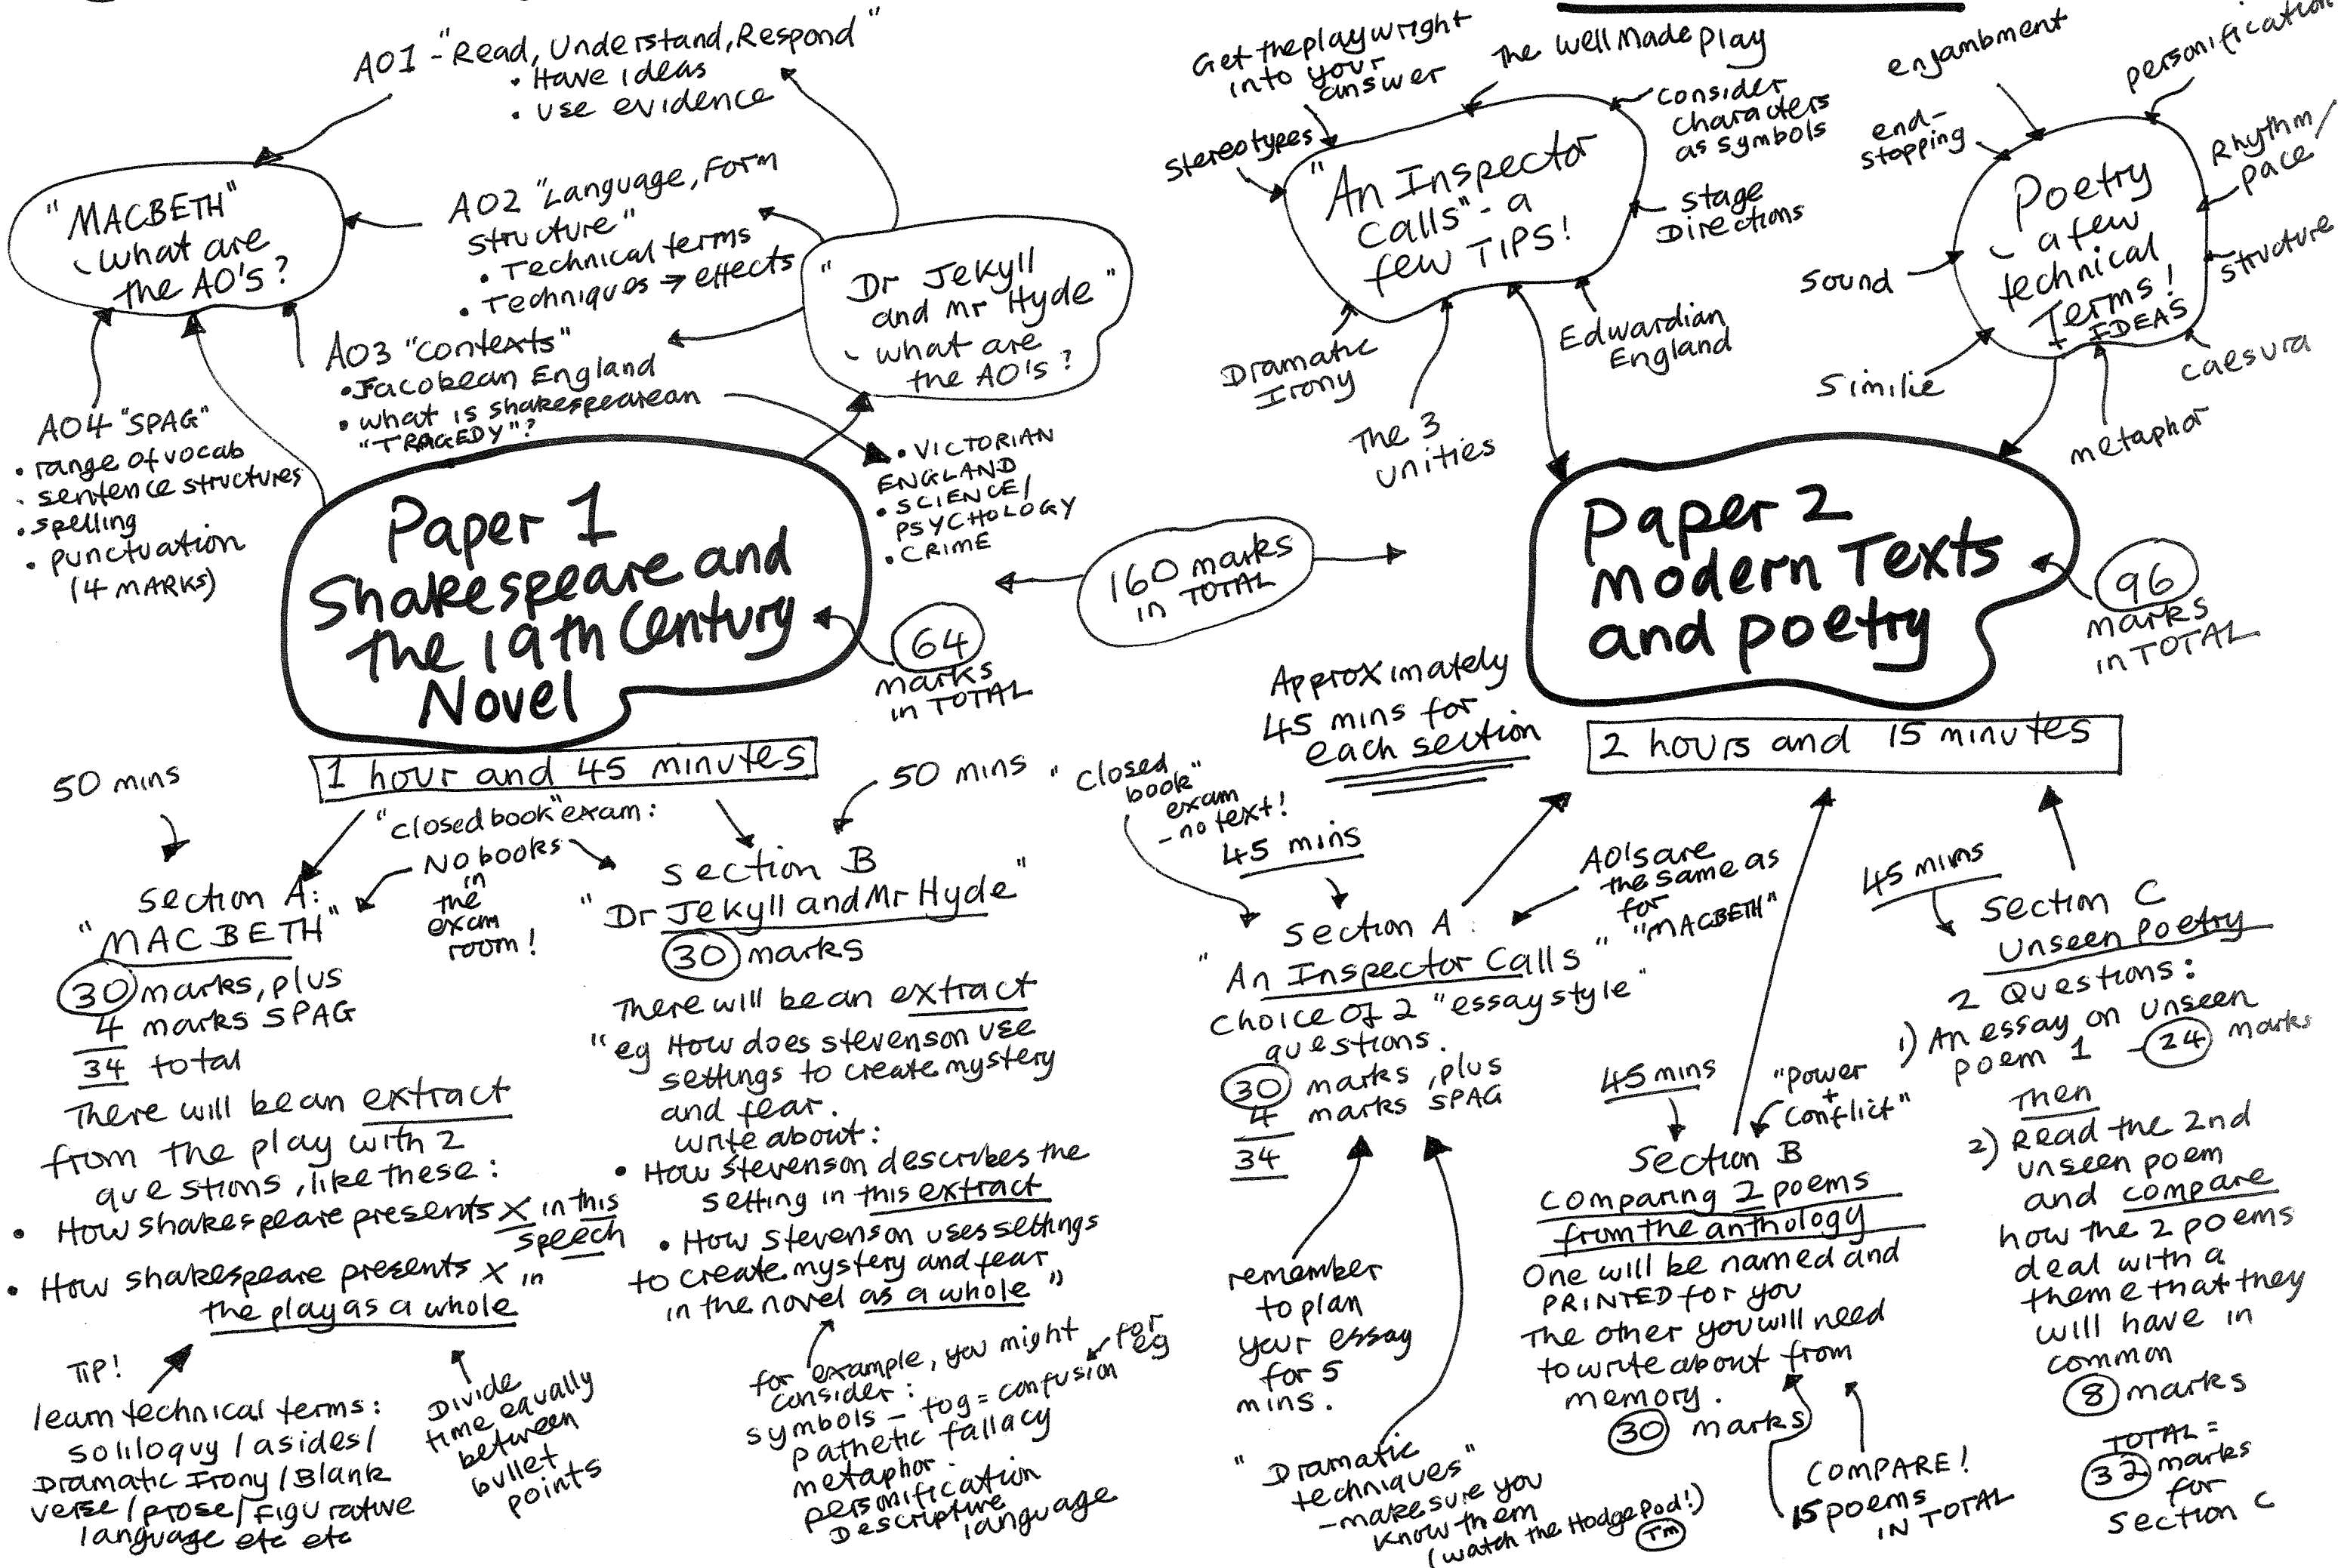 AO1 - "Read, Understand, Respond"
• Have ideas
• use evidence
"MACBETH"
- what are
the AO's?
AO2 "Language, Form
structure"
• Technical terms
• Techniques → effects
"Dr Jekyll
and Mr Hyde"
- what are
the AO's?
AO3 "contexts"
• Jacobean England
• what is shakespearean
"TRAGEDY"?
• VICTORIAN
ENGLAND
• SCIENCE/
PSYCHOLOGY
• CRIME
AO4 "SPAG"
• range of vocab
• sentence structures
• spelling
• punctuation
(4 MARKS)
Paper 1
Shakespeare and
the 19th Century
Novel
64
marks
in TOTAL
160 marks
in TOTAL
1 hour and 45 minutes
50 mins
50 mins
"closed book" exam:
NO books
in
the
exam
room!
Section A:
"MACBETH"
30 marks, plus
4 marks SPAG
34 total
There will be an extract
from the play with 2
questions, like these:
• How shakespeare presents X in this
speech
• How shakespeare presents X in
the play as a whole"
TIP!
learn technical terms:
soliloquy / asides /
Dramatic Irony / Blank
verse / prose / Figurative
language etc etc
Divide
time equally
between
bullet
points
Section B
"Dr Jekyll and Mr Hyde"
30 marks
There will be an extract
"eg How does stevenson use
settings to create mystery
and fear.
write about:
• How stevenson describes the
setting in this extract
• How stevenson uses settings
to create mystery and fear
in the novel as a whole"
for example, you might
consider:
symbols - fog = confusion
for
eg
pathetic fallacy
metaphor.
personification
Descriptive
language
Get the playwright
into your
answer
The Well Made Play
stereotypes
consider
characters
as symbols
"An Inspector
Calls" - a
few TIPS!
stage
Directions
Dramatic
Irony
The 3
unities
Edwardian
England
enjambment
personification
end-
stopping
Rhythm/
pace
Poetry
- a few
technical
Terms!
+ IDEAS
Sound
structure
Similie
caesura
metaphor
Paper 2
Modern Texts
and poetry
96
marks
in TOTAL
2 hours and 15 minutes
Approximately
45 mins for
each section
"Closed
book"
exam
- no text!
45 mins
AO's are
the same as
for
"MACBETH"
Section A:
"An Inspector Calls"
choice of 2 "essay style"
questions.
30 marks, plus
4 marks SPAG
34
remember
to plan
your essay
for 5
mins.
"Dramatic
techniques"
- make sure you
know them
(watch the HodgePod!)
TM
45 mins
"Power
+
Conflict"
Section B
Comparing 2 poems
from the anthology
One will be named and
PRINTED for you
The other you will need
to write about from
memory.
30 marks
COMPARE!
15 poems
IN TOTAL
45 mins
Section C
Unseen Poetry
2 Questions:
1) An essay on unseen
poem 1 - 24 marks
Then
2) Read the 2nd
unseen poem
and compare
how the 2 poems
deal with a
theme that they
will have in
common
8 marks
TOTAL =
32 marks
for
Section C